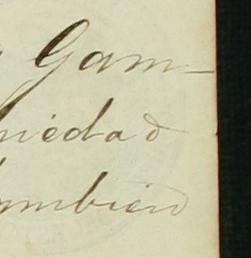 Gam-
niedad
ambien